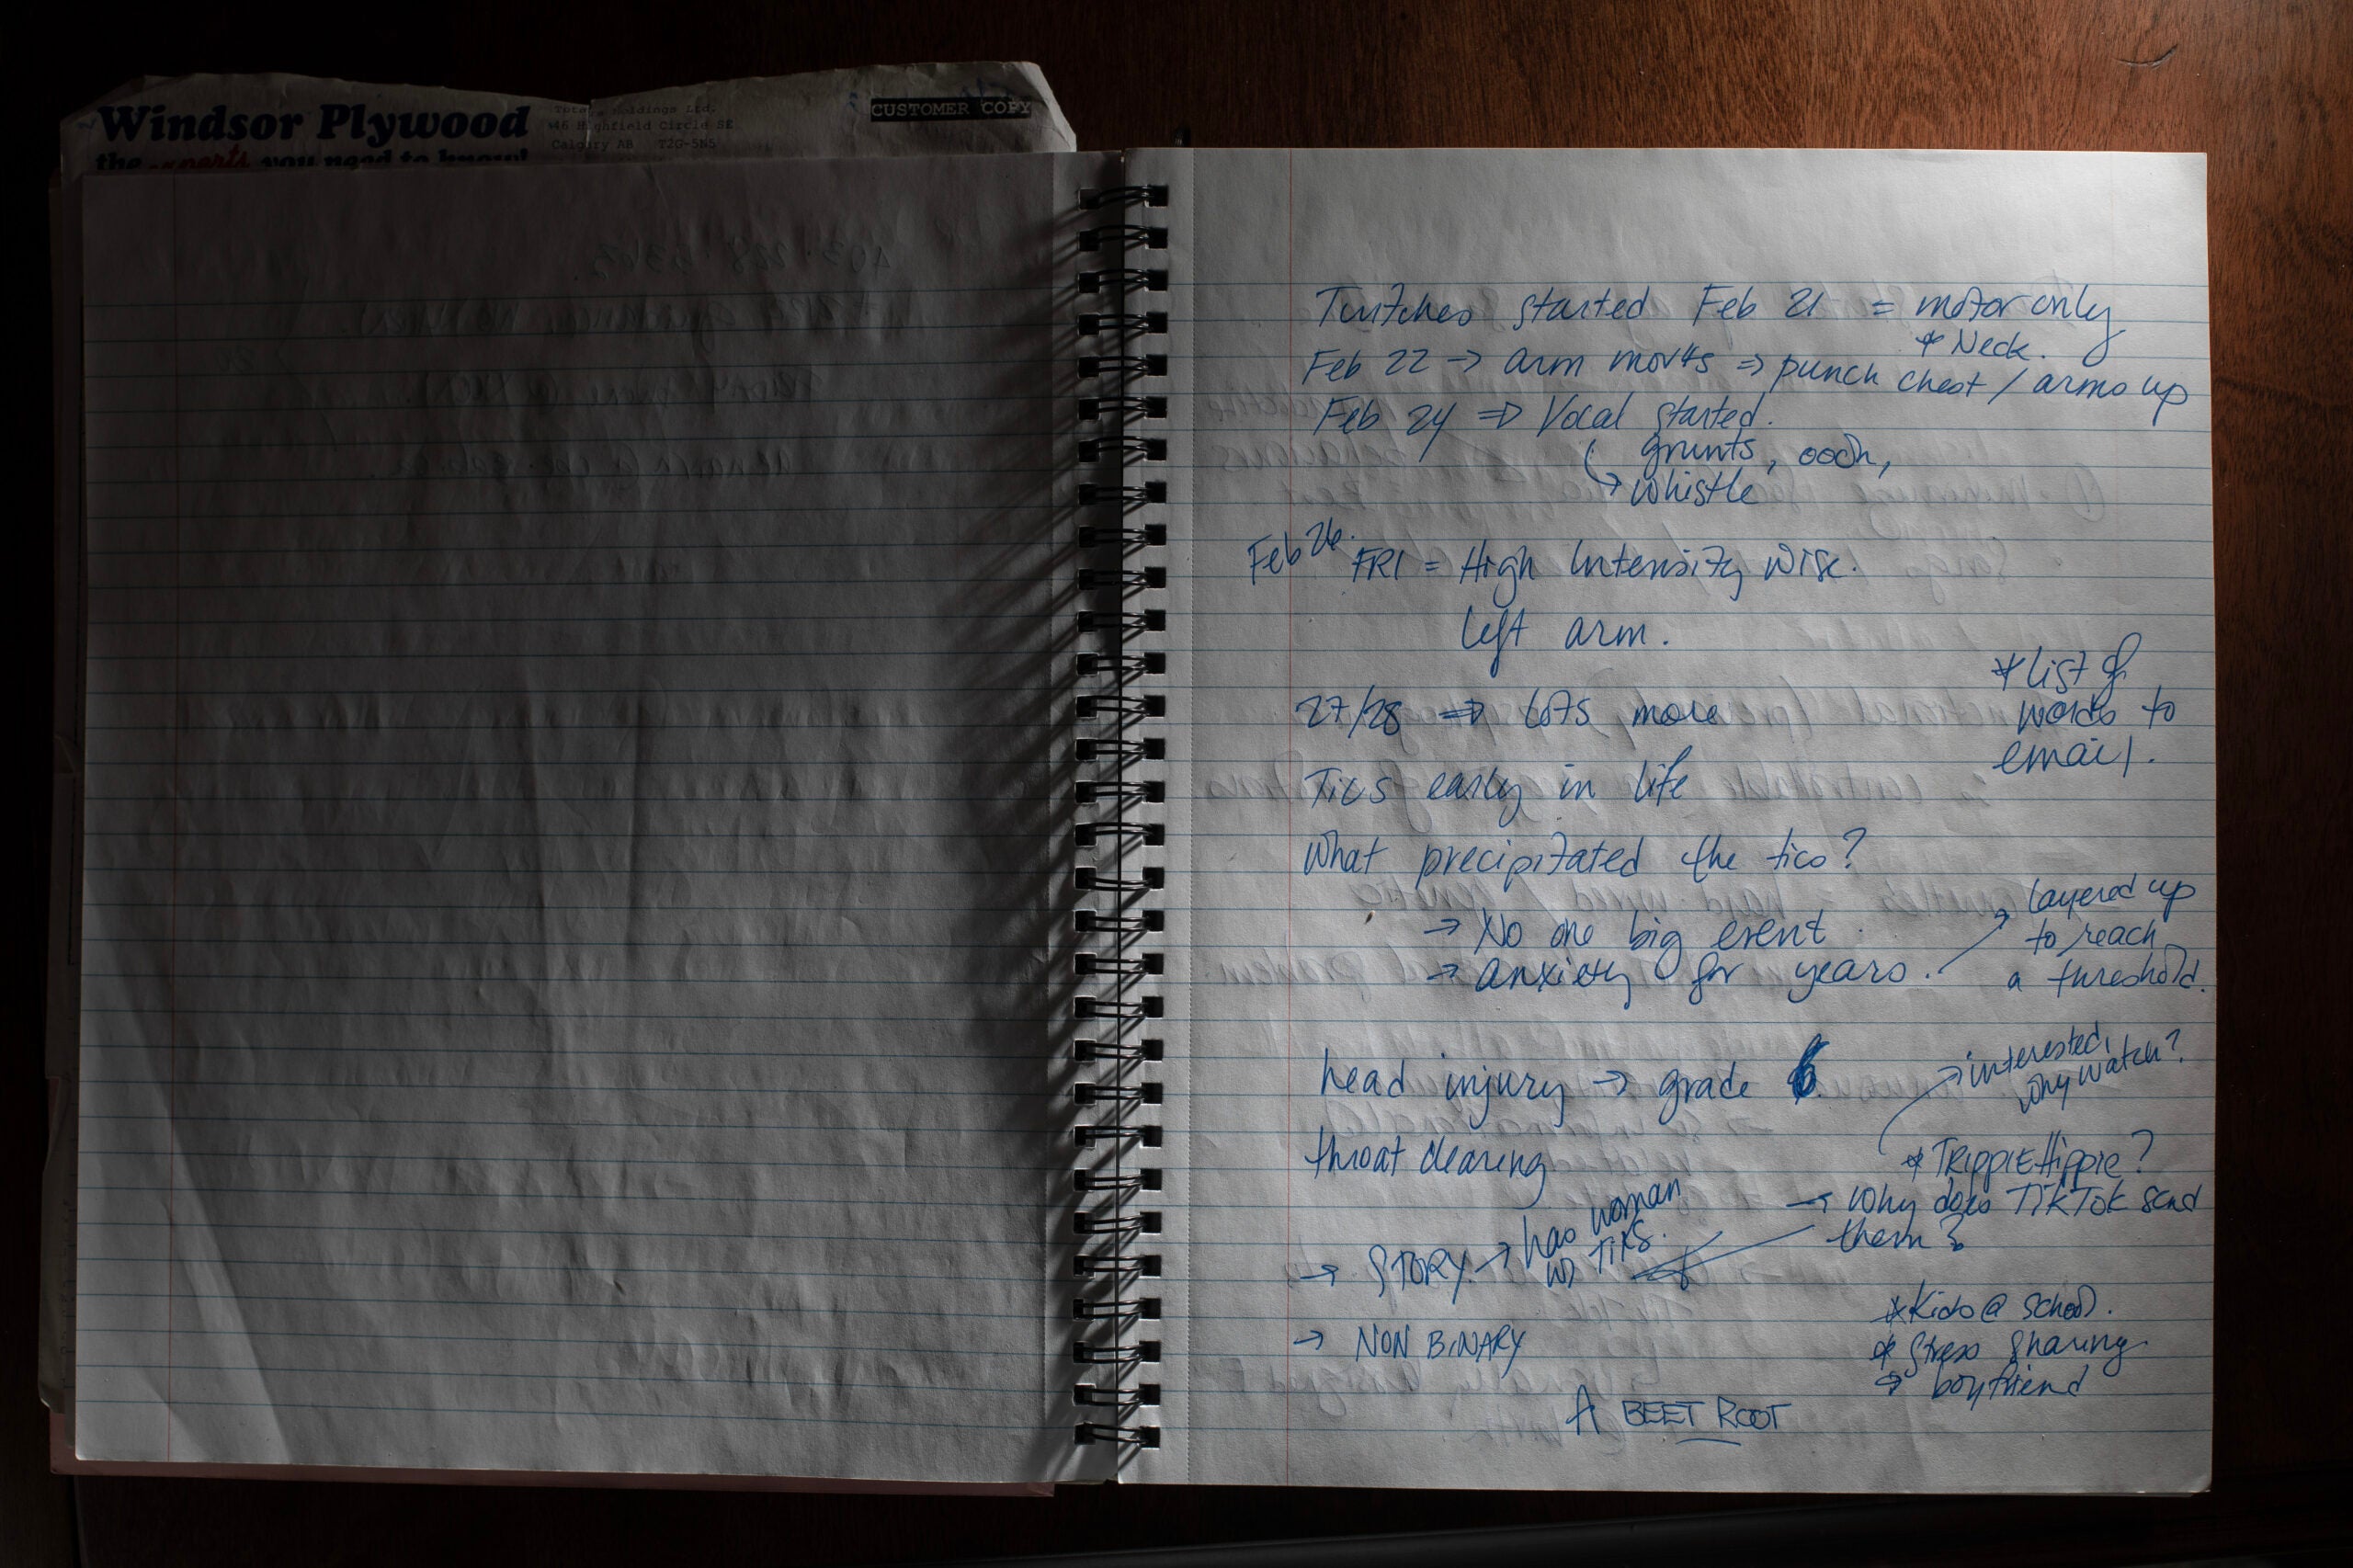 Windsor Plywood
the experts you need to know!
Holdings Ltd.
Highfield Circle SE
Calgary AB T2G-5N5
CUSTOMER COPY
Twitches started Feb 21 = motor only
* Neck.
Feb 22 → arm mov4s ⇒ punch chest / arms up
Feb 24 ⇒ Vocal started.
grunts, oooh,
↳ whistle
Feb 26. FRI = High Intensity wise.
left arm.
27/28 ⇒ lots more
* list of
words to
email.
Tics early in life
What precipitated the tics?
→ No one big event.
→ anxiety for years.
layered up
to reach
a threshold.
head injury → grade 6
→ interested,
why watch?
throat clearing
* TRIPPIEHippie?
→ Why does TikTok send
them?
→ STORY → has woman
w/ Tiks.
→ NON BINARY
* Kids @ School.
* Stress Sharing
→ boyfriend
A BEET ROOT